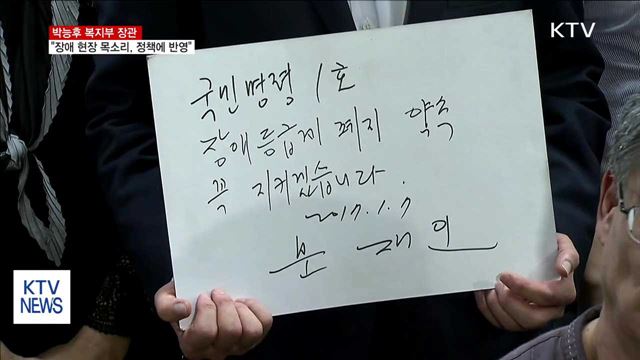 박능후 복지부 장관
"장애 현장 목소리, 정책에 반영"
KTV
국민명령 1호
장애등급제 폐지 약속
꼭 지키겠습니다.
2017.1.7
문 재 인
KTV
NEWS